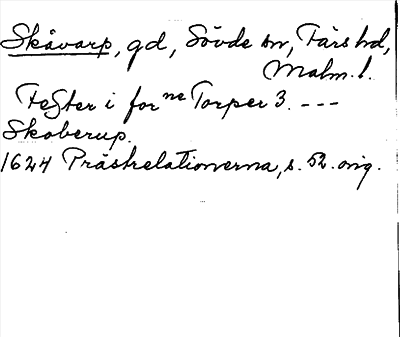 Skåvarp, gd, Sövde sn, Färs hd,
Malm. l.
Fester i forne Torper 3. ---
Skoberup.
1624 Prästrelationerna, s. 52. orig.